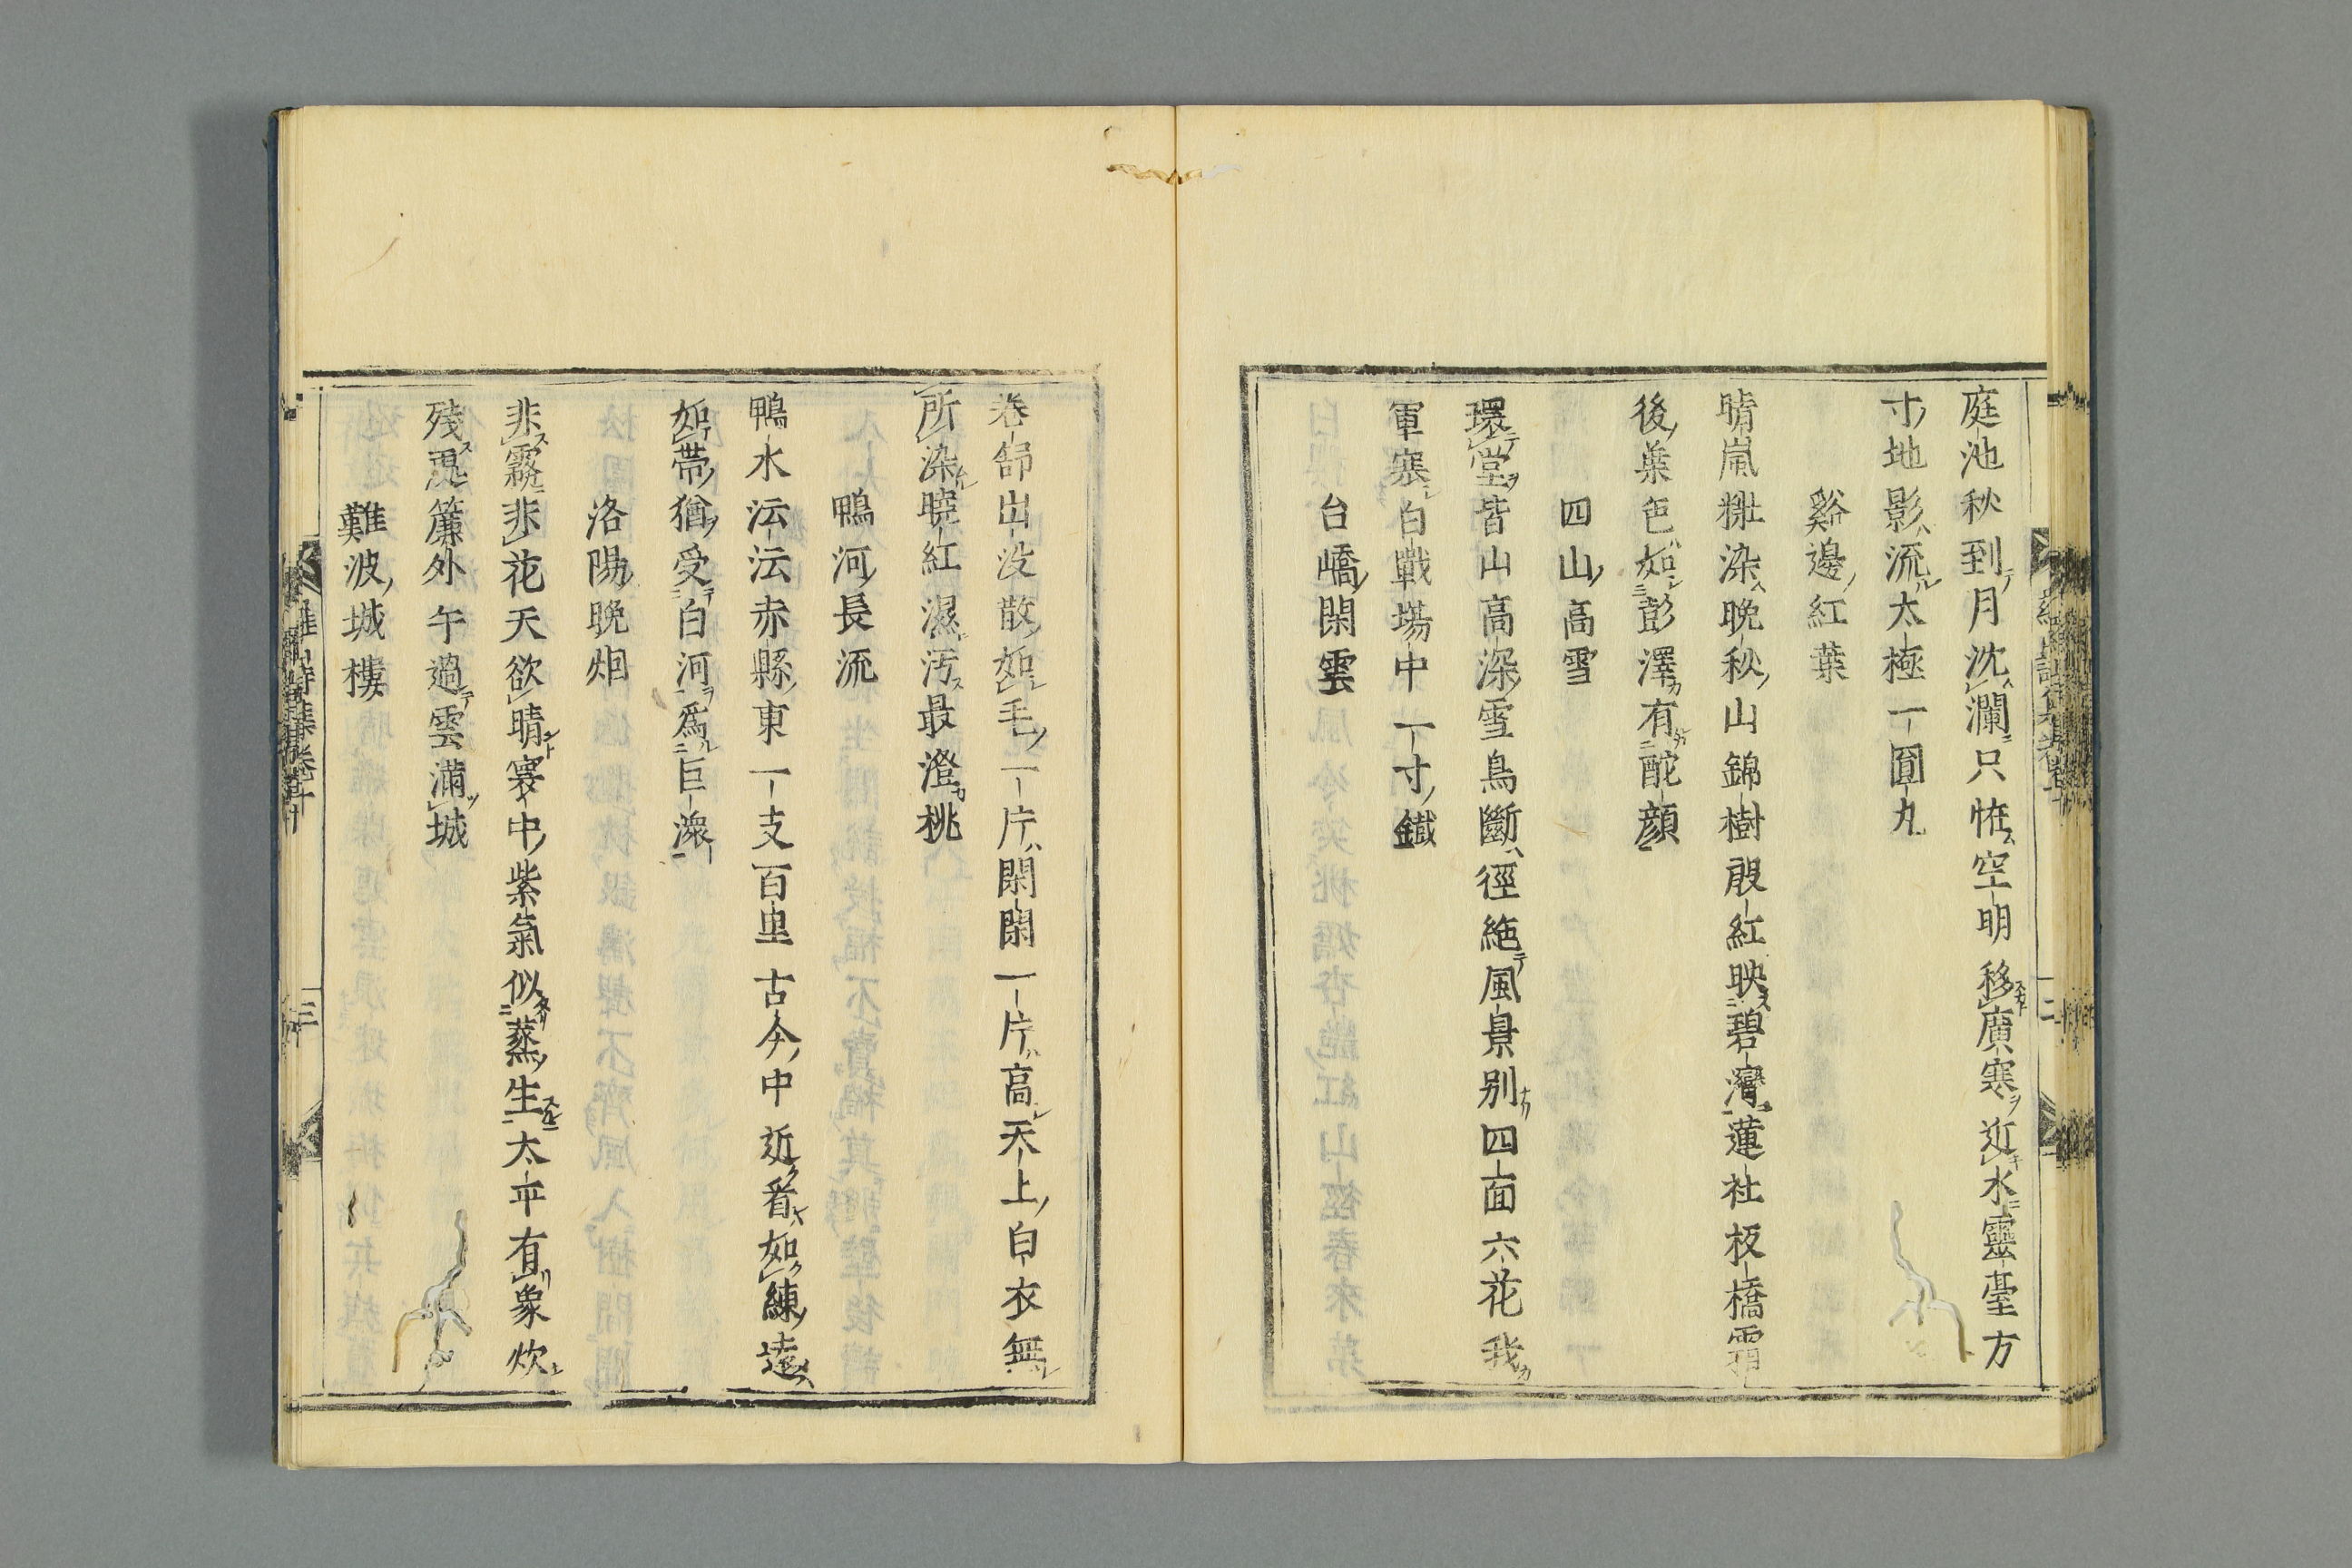 庭池秋到月沈瀾只恠空明移廣寒近水靈臺方
寸地影流太極一圓丸
谿邊紅葉
晴嵐粧染晩秋山錦樹殷紅映碧灣蓮社板橋霜
後葉色如彭澤有酡顔
四山高雪
環堂皆山高深雪鳥斷徑絶風景別四面六花我
軍寒白戰場中一寸鐵
台嶠閑雲
卷舒出没散如毛一片閑閑一片高天上白衣無
所染曉紅濕汚最澄桃
鴨河長流
鴨水沄沄赤縣東一支百里古今中近看如練遠
如帶猶受白河爲巨濠
洛陽晩烟
非霧非花天欲晴寰中紫氣似蒸生太平有象炊
殘現簾外午過雲滿城
難波城樓
三